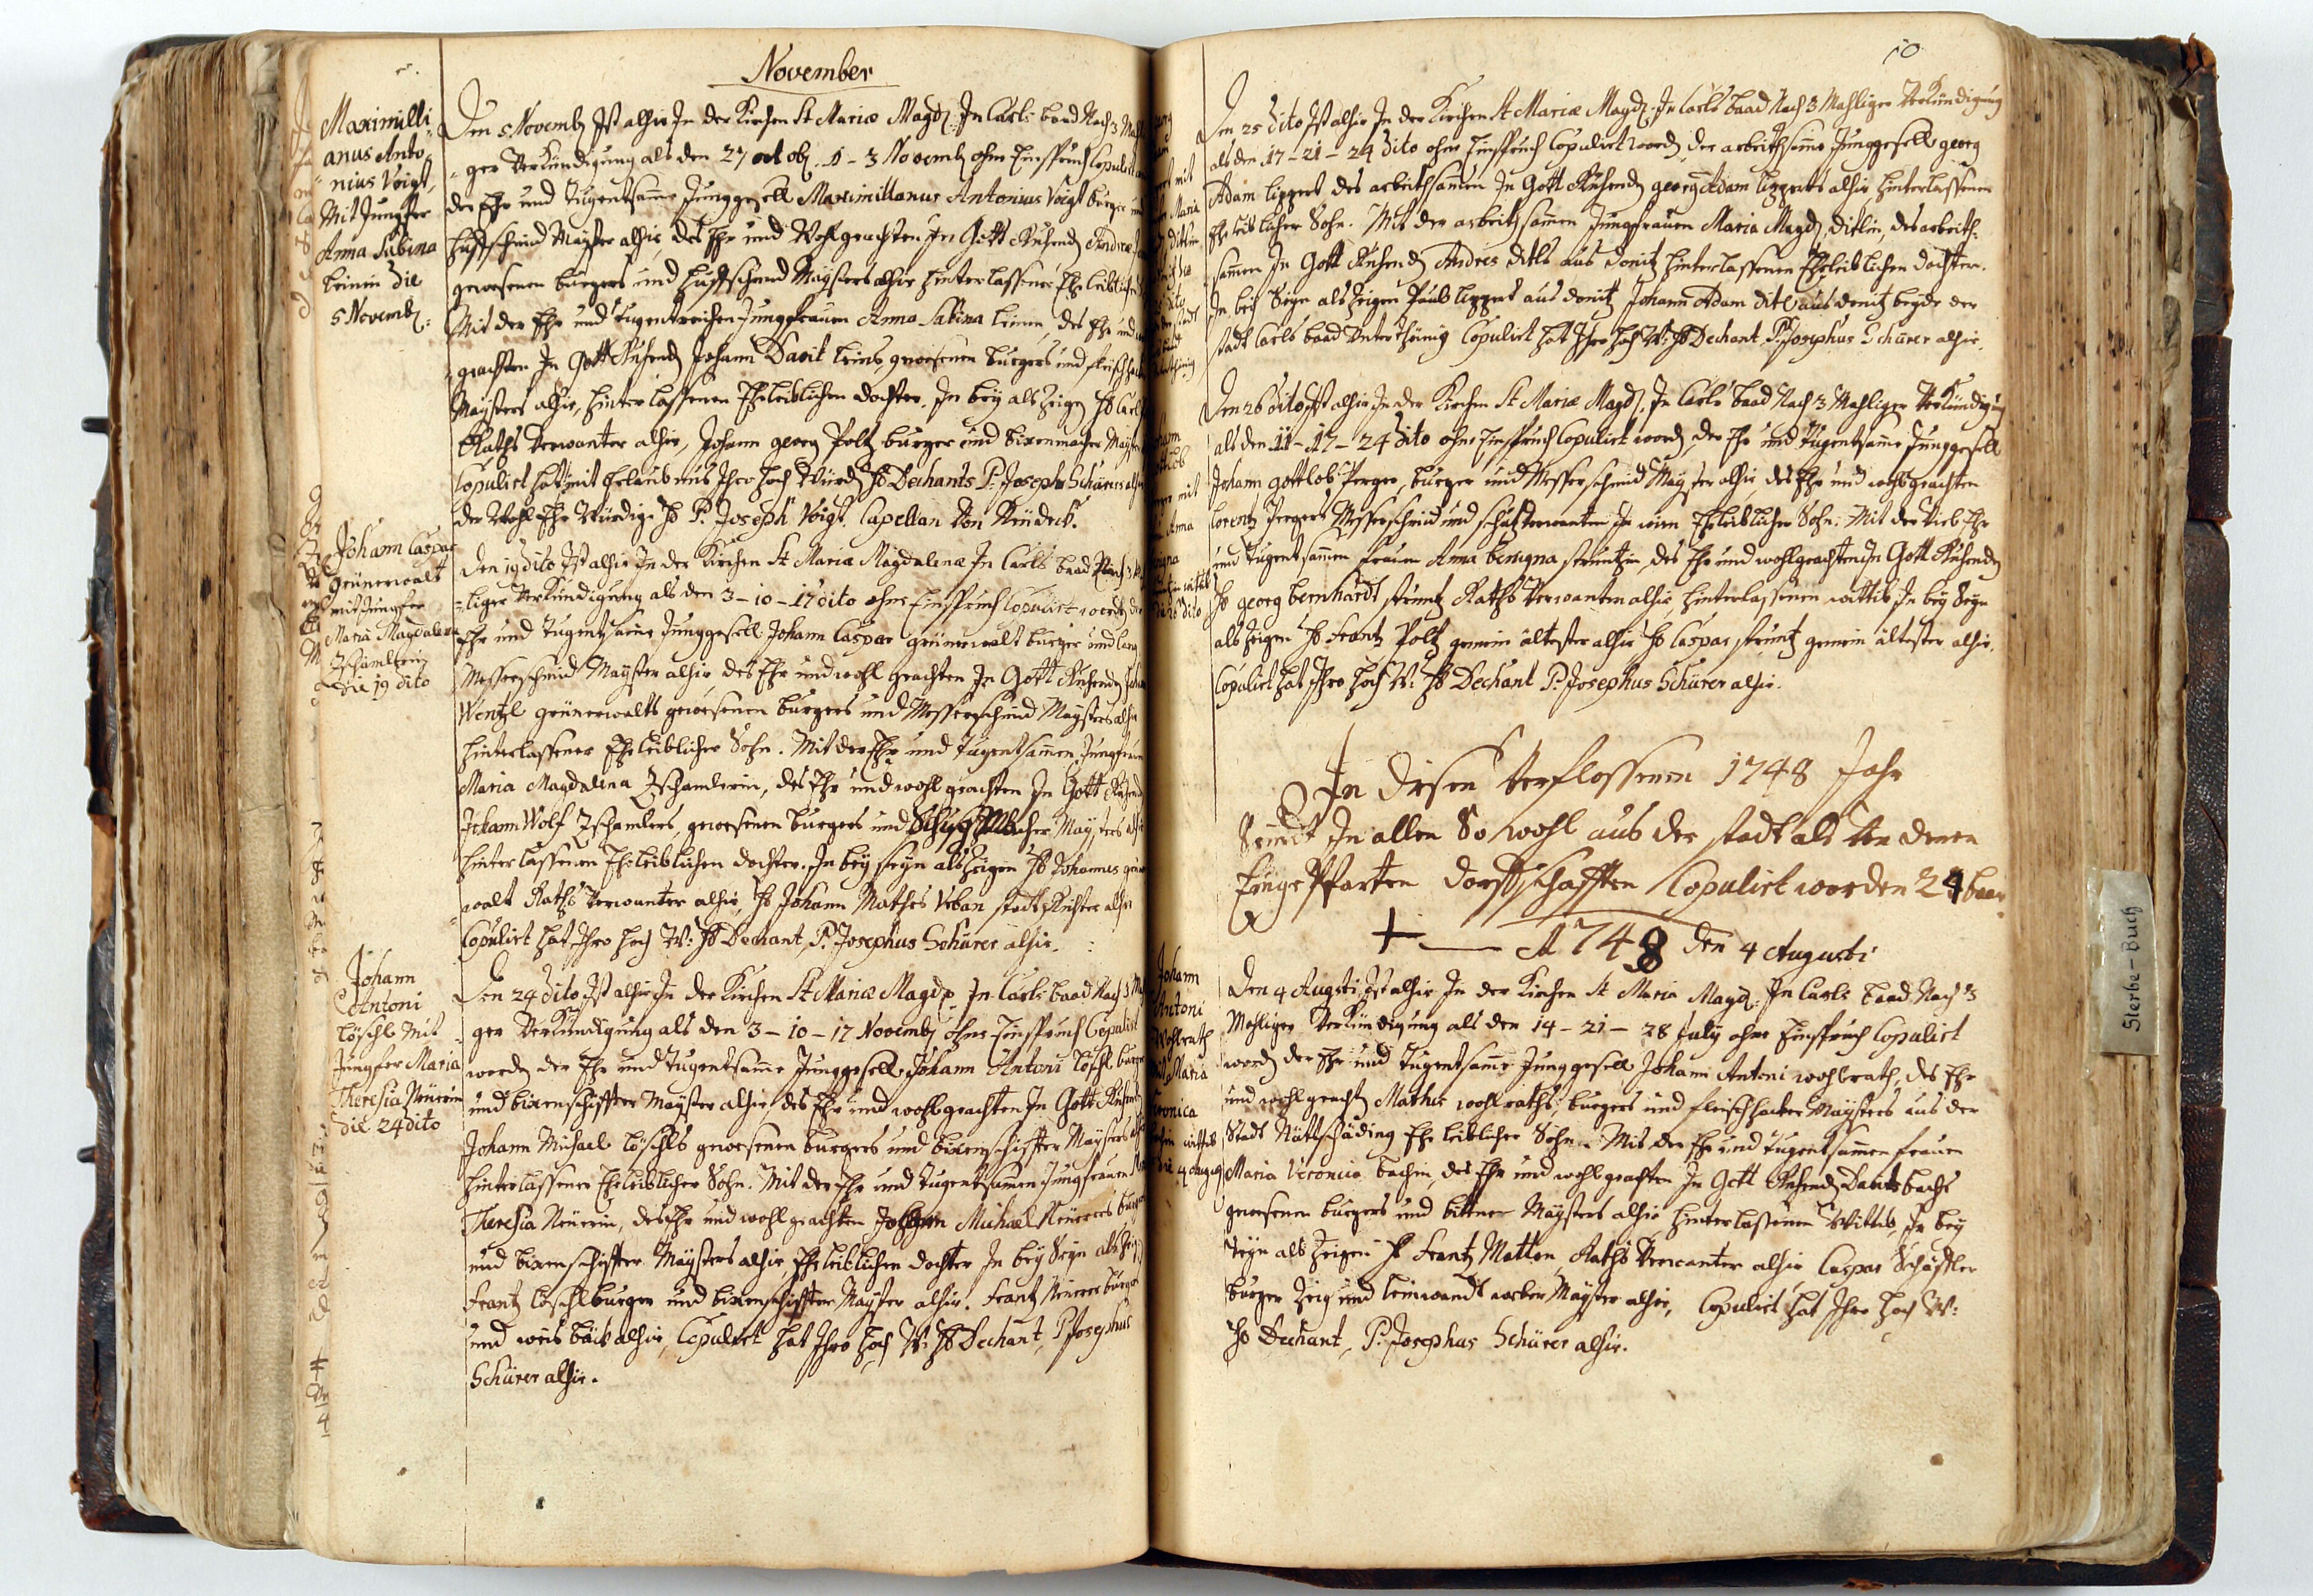 November
Maximilli
anus Anto
nius Voigt,
Mit Jungfer
Anna Sabina
Leinin die
5 Novemb:
Den 5 Novemb Ist alhir In der Kirchen St Mariæ Magd: In Carls baad Nach 3 Mahli
ger Verkündigung als den 27 octob 1 - 3 Novemb ohne Einspruch Copulirt
der Ehr und Tugentsame Junggesell Maximillanus Antonius Voigt burger und
huffschmid Mayster alhir, des Ehr und Wohlgeachten In Gott Ruhend Andreæ
gewesenen burgers und huffschmid Maysters alhir hinterlassener Eheleiblicher
Mit der Ehr und tugentreichen Jungfrauen Anna Sabina Leinin, des Ehr und
geachten In Gott Ruhend Johann David Leins, gewesenen burgers und fleischhacker
Maysters alhir, hinterlassenen Eheleiblichen dochter. In bey als Zeigen H Carl
Raths Verwanter alhir, Johann georg Poltz burger und bixenmacher Mayster
Copulirt hat mit Erlaubnus Ihro Hoch Würd H Dechants P: Joseph Schürers alhir
der Wohl Ehr Würdige H P: Joseph Voigt Capellan Von Neudeck.
Johann Caspar
grünerwalt
mit Jungfer
Maria Magdalena
Zschamlerin
die 19 dito
Den 19 dito Ist alhir In der Kirchen St Maria Magdalenæ In Carls baad Nach 3 Mah
liger Verkündigung als den 3 - 10 - 17 dito ohne Einspruch Copulirt word der
Ehr und Tugentsame Junggesell Johann Caspar grünerwalt burger und lang
Messerschmid Mayster alhir des Ehr und wohl geachten In Gott Ruhend Johann
Wentzl grünerwalts gewesenen burgers und Messerschmid Maysters alhir
hinterlassener Eheleiblicher Sohn. Mit der Ehr und Tugentsamen Jungfrauen
Maria Magdalena Zschamlerin, des Ehr und wohl geachten In Gott Ruhend
Johann Wolf Zschamlers, gewesenen burgers und Schug Macher Maysters alhir
hinterlassenen Eheleiblichen dochter. In bey seyn als Zeigen H Johannes grüner
walt Raths Verwanter alhir, H Johann Mathes Urban stadt Richter alhir
Copulirt hat Ihro Hoch W: H Dechant, P: Josephus Schürer alhir.
Johann
Antoni
Löschl Mit
Jungfer Maria
Theresia Neürerin
die 24 dito
Den 24 dito Ist alhir In der Kirchen St Mariæ Magd: In Carls baad Nach 3 Mahli
ger Verkündigung als den 3 - 10 - 17 Novemb ohne Einspruch Copulirt
word der Ehr und Tugentsame Junggesell Johann Antoni Löschl burger
und bixenschiffter Mayster alhir des Ehr und wohlgeachten In Gott Ruhend
Johann Michael Löschls gewesenen burgers und bixenschiffter Maysters alhir
hinterlassener Eheleiblicher Sohn. Mit der Ehr und Tugentsamen Jungfrauen Maria
Theresia Neürerin, des Ehr und wohl geachten Johann Michael Neürers burgers
und bixenschiffter Maysters alhir, Eheleiblichen dochter In bey Seyn als Zeigen
Frantz Löschl burger und bixenschiffter Mayster alhir. Frantz Neürer burger
und weis bäck alhir, Copulirt hat Ihro Hoch W: H Dechant, P: Josephus
Schürer alhir.
10
Den 25 dito Ist alhir In der Kirchen St Mariæ Magd: In Carls baad Nach 3 Mahliger Verkündigung
als den 17 - 21 - 24 dito ohne Einspruch Copulirt word, der arbeithsame Junggesell georg
Adam Lippert des arbeithsamen In Gott Ruhend georg Adam Lipperts alhir hinterlassenen
Eheleiblicher Sohn. Mit der arbeithsamen Jungfrauen Maria Magd: ditlin, des arbeith
samen In Gott Ruhend Andres ditls aus donitz hinterlassenen Eheleiblichen dochter.
In bey Seyn als Zeigen Pauls Lippert aus donitz Johann Adam ditl aus donitz beyde der
stadt Carls baad Unterthänig Copulirt hat Ihro Hoch W: H Dechant P: Josephus Schürer alhir.
Den 26 dito Ist alhir In der Kirchen St Mariæ Magd: In Carls baad Nach 3 Mahliger Verkündigung
als den 11 - 17 - 24 dito ohne Einspruch Copulirt word, der Ehr und Tugentsame Junggesell
Johann gottlob Perger, burger und Messerschmid Mayster alhir, des Ehr und wohlgeachten
Lorentz Pergers Messerschmid und schutzverwanten In wien Eheleiblicher Sohn. Mit der Viel Ehr
und Tugentsamen frauen Anna benigna strüntzin des Ehr und wohlgeachten In Gott Ruhenden
H georg bernhardt strüntz Raths Verwanten alhir hinterlassenen wittib In bey Seyn
als Zeigen H Frantz Poltz gemein ältester alhir H Caspar strüntz gemein ältester alhir,
Copulirt hat Ihro Hoch W: H Dechant P: Josephus Schürer alhir.
In disen Verflossenen 1748 Jahr
Seindt In allen So wohl aus der stadt als Von denen
Einge Pfarten dorffschafften Copulirt worden 24 baar
A 1748 den 4 Augusti
Johann
Antoni
Wohlrath
Maria
Veronica
wittib
die 4 Augus
Den 4 Augusti Ist alhir In der Kirchen St Maria Magd: In Carls baad Nach 3
Mahliger Verkündigung als den 14 - 21 - 28 July ohne Einspruch Copulirt
word der Ehr und Tugentsame Junggesell Johann Antoni wohlrath, des Ehr
und wohlgeacht Mathes wohlraths, burgers und fleischhacker Maysters aus der
Stadt Nättschäding Eheleiblicher Sohn. Mit der Ehr und Tugentsamen frauen
Maria Veronica bachin, des Ehr und wohlgeachten In Gott Ruhend Davids bachs
gewesenen burgers und bittner Maysters alhir hinterlassenen Wittib, In bey
Seyn als Zeigen H Frantz Matton, Raths Verwanter alhir Caspar Schäffler
burger Zeig und leinwandt weber Mayster alhir, Copulirt hat Ihro Hoch W:
H Dechant, P: Josephus Schürer alhir.
Sterbe-Buch